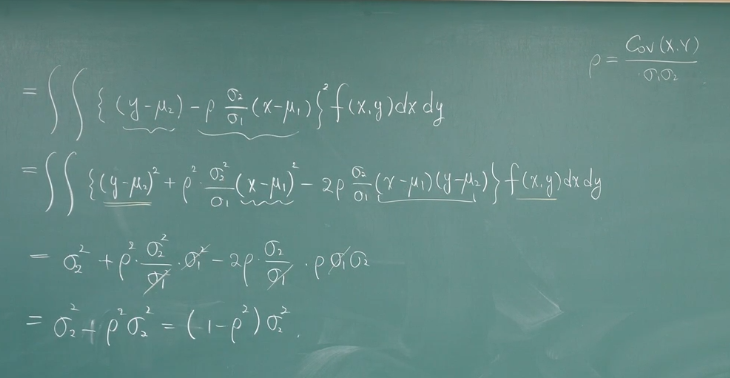 ρ = Cov(X,Y) / σ₁σ₂
= ∫∫ { (y-μ₂) - ρ σ₂/σ₁ (x-μ₁) }² f(x,y) dx dy
= ∫∫ { (y-μ₂)² + ρ² σ₂²/σ₁ (x-μ₁)² - 2ρ σ₂/σ₁ (x-μ₁)(y-μ₂) } f(x,y) dx dy
= σ₂² + ρ² · σ₂²/σ₁² · σ₁² - 2ρ · σ₂/σ₁ · ρ σ₁σ₂
= σ₂² + ρ²σ₂² = (1-ρ²)σ₂².